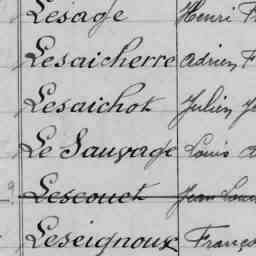 Lesage Henri
Lesaicherre Adrien F
Lesaichot Julien
Le Sauvage Louis
Lescouet Jean Loui
Leseignoux Franço